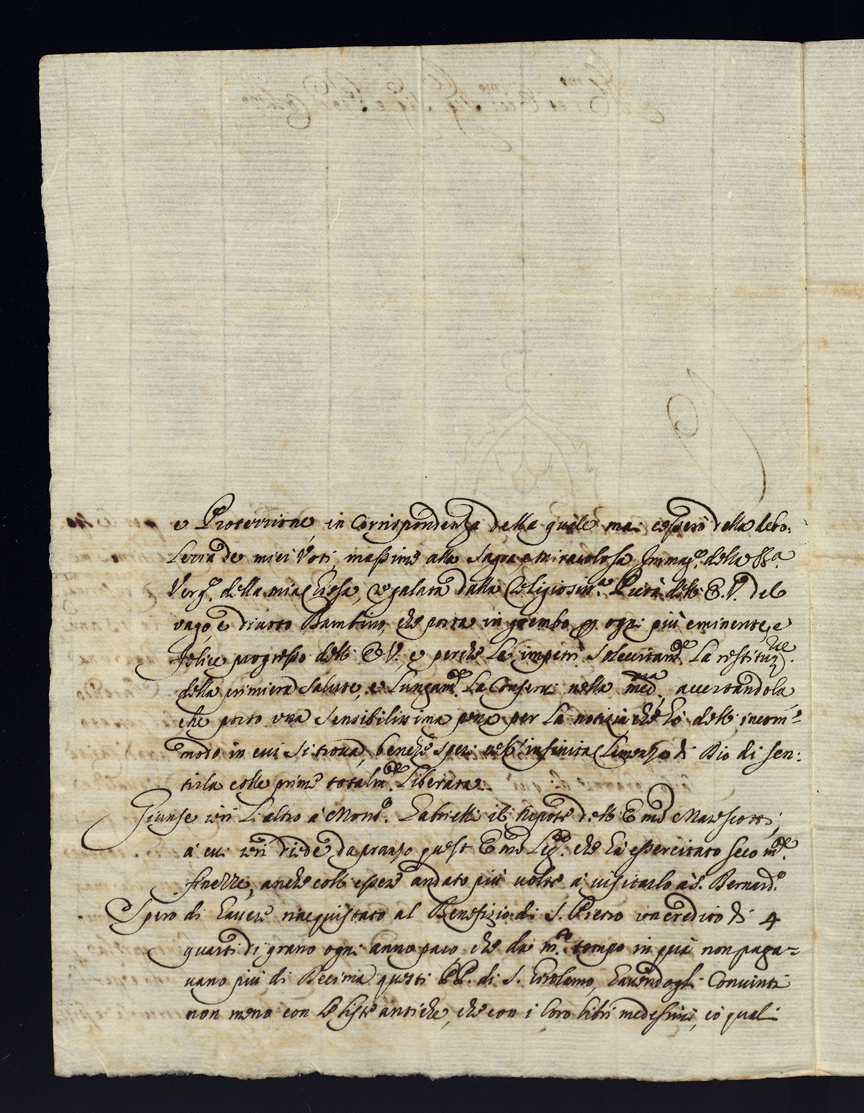 e Protezzione in Corrispondenza della quale mai cesserò della debo:
lezza de miei Voti, massime alla Sagra e miracolosa Immag.e della SS.a
Verg.e della mia Chiesa, regalata dalla Religiosis.a Pietà dell' E.V. del
vago e divoto Bambino, che porta in grembo p ogni più eminente, e
felice progresso dell' E.V. e perche le impetri sollecitam.te la restituz.ne
della primiera Salute, e lungam.te La Conservi nella med.ma accertandola
che porto una Sensibilissima pena per la notizia che hò dell' incom=
modo in cui si trova, benche speri nell' infinita Clemenza di Dio di sen:
tirla colle prime totalm.te liberata.
Giunse ieri l'altro à Mons.r Gabrielli il Nepote dell' E.mo Marescotti,
à cui ieri diede da pranzo quest' E.mo Leg.o che hà esercitato seco m.te
finezze, anche coll' essere andato più volte à visitarlo à S. Bernard.o
Spero di havere riacquistato al Benefizio di S. Pietro un credito di 4
quarti di grano ogni anno che da m.to tempo in quà non paga=
vano più di Decima questi PP. di S. Girolamo, havendogli Convinti
non meno con le liste antiche, che con i loro libri medesimi, i quali